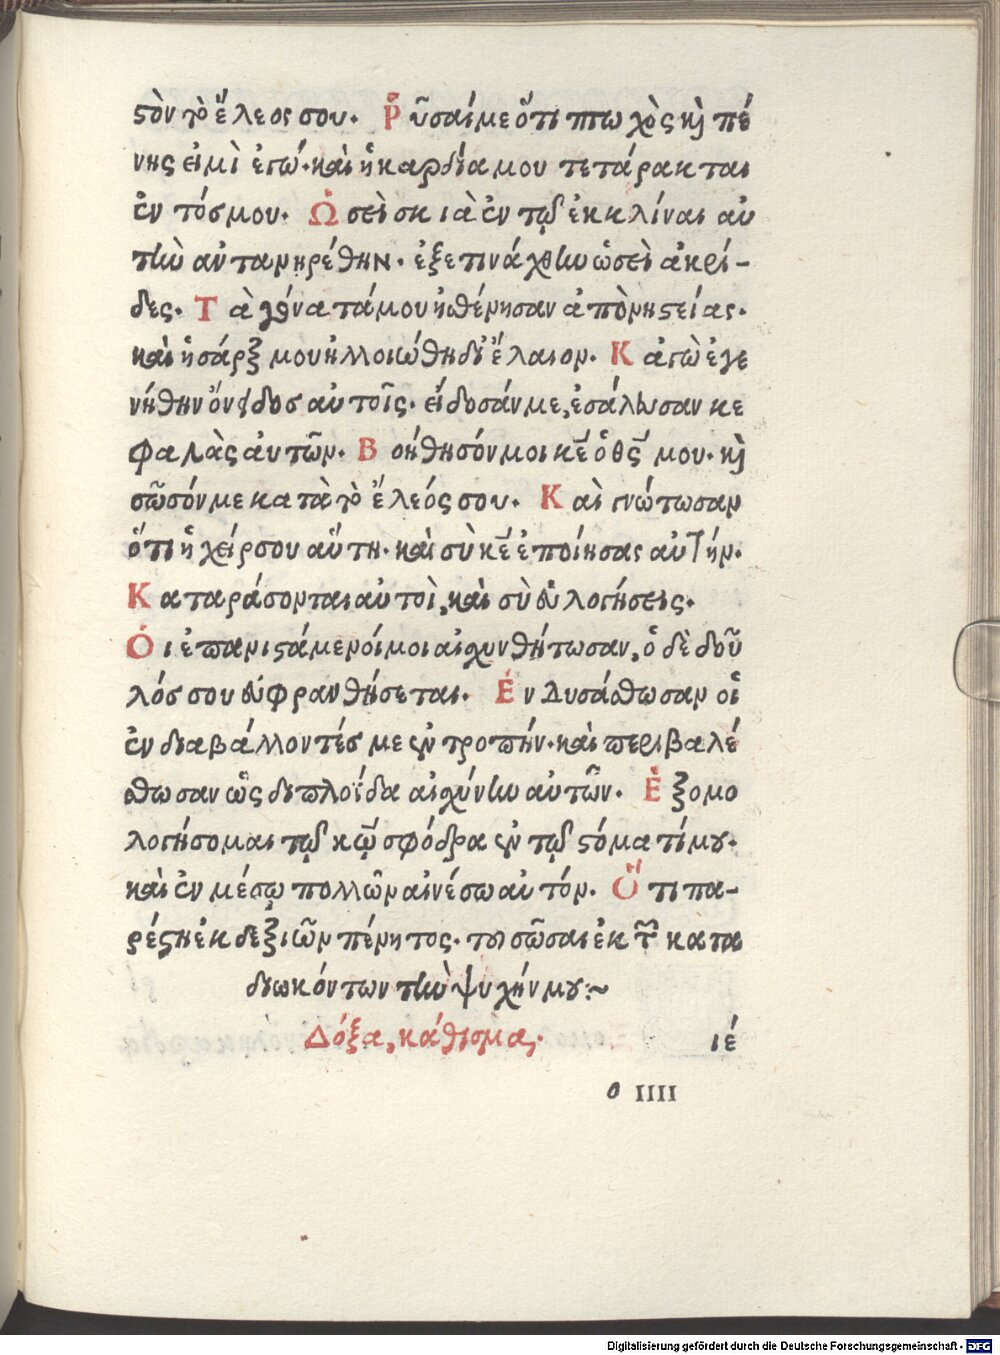 στὸν τὸ ἔλεος σου. Ῥῦσαί με ὅτι πτωχὸς καὶ πέ
νης εἰμὶ ἐγώ. καὶ ἡ καρδία μου τετάρακται
ἐν τός μου. Ὡσεὶ σκιὰ ἐν τῷ ἐκκλίναι αὐ
τὴν αὐταμηρέθην. ἐξετινάχθην ὡσεὶ ἀκρί-
δες. Τὰ γόνατά μου ἠσθένησαν ἀπὸ νηστείας.
καὶ ἡ σάρξ μου ἠλλοιώθη δι' ἔλαιον. Κἀγὼ ἐγε
νήθην ὄνειδος αὐτοῖς. εἴδοσάν με, ἐσάλευσαν κε
φαλὰς αὐτῶν. Βοήθησόν μοι κε ὁ θς μου. καὶ
σῶσόν με κατὰ τὸ ἔλεός σου. Καὶ γνώτωσαν
ὅτι ἡ χείρ σου αὕτη. καὶ σὺ κε ἐποίησας αὐτήν.
Καταράσονται αὐτοὶ, καὶ σὺ εὐλογήσεις.
Ὁι ἐπανιστάμενοί μοι αἰσχυνθήτωσαν, ὁ δὲ δοῦ
λός σου εὐφρανθήσεται. Ἐνδυσάσθωσαν οἱ
ἐνδιαβάλλοντές με ἐντροπήν. καὶ περιβαλέ
σθωσαν ὡς διπλοΐδα αἰσχύνην αὐτῶν. Ἐξομο
λογήσομαι τῷ κῳ σφόδρα ἐν τῷ στόματί μου.
καὶ ἐν μέσῳ πολλῶν αἰνέσω αὐτόν. Ὅτι πα-
ρέστη ἐκ δεξιῶν πένητος. τοῦ σῶσαι ἐκ τῶν κατα
διωκόντων τὴν ψυχήν μου:~
Δόξα, κάθισμα.
ιέ
ο IIII
Digitalisierung gefördert durch die Deutsche Forschungsgemeinschaft - DFG